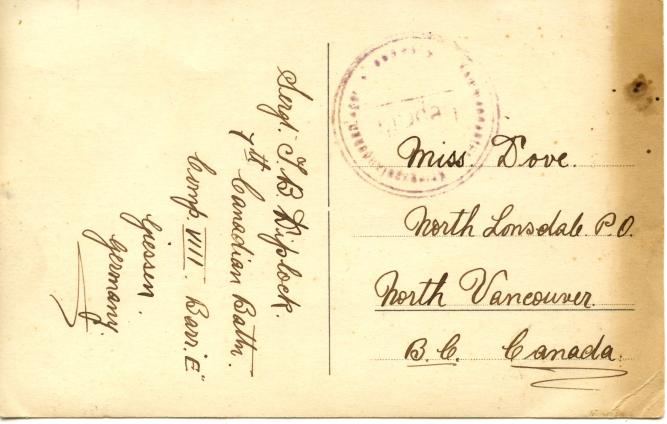 Sergt. J. B. Diplock.
7th Canadian Battn.
Comp. VIII. Barr. E"
Giessen.
Germany.
Miss. Dove.
North Lonsdale P.O.
North Vancouver.
B.C. Canada.